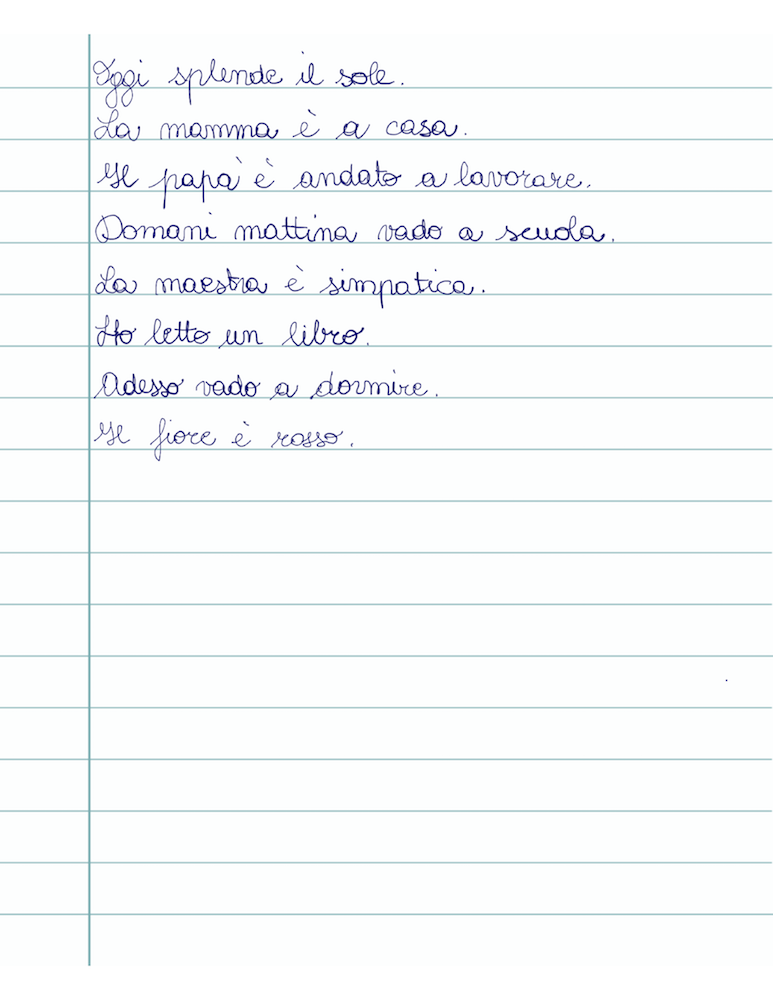 Oggi splende il sole.
La mamma è a casa.
Il papà è andato a lavorare.
Domani mattina vado a scuola.
La maestra è simpatica.
Ho letto un libro.
Adesso vado a dormire.
Il fiore è rosso.